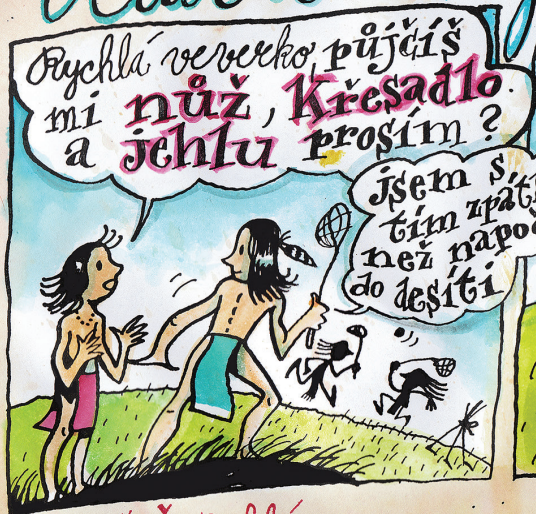 Rychlá veverko, půjčíš
mi nůž, Křesadlo
a jehlu prosím?
jsem s
tím zpát
než napo
do desíti